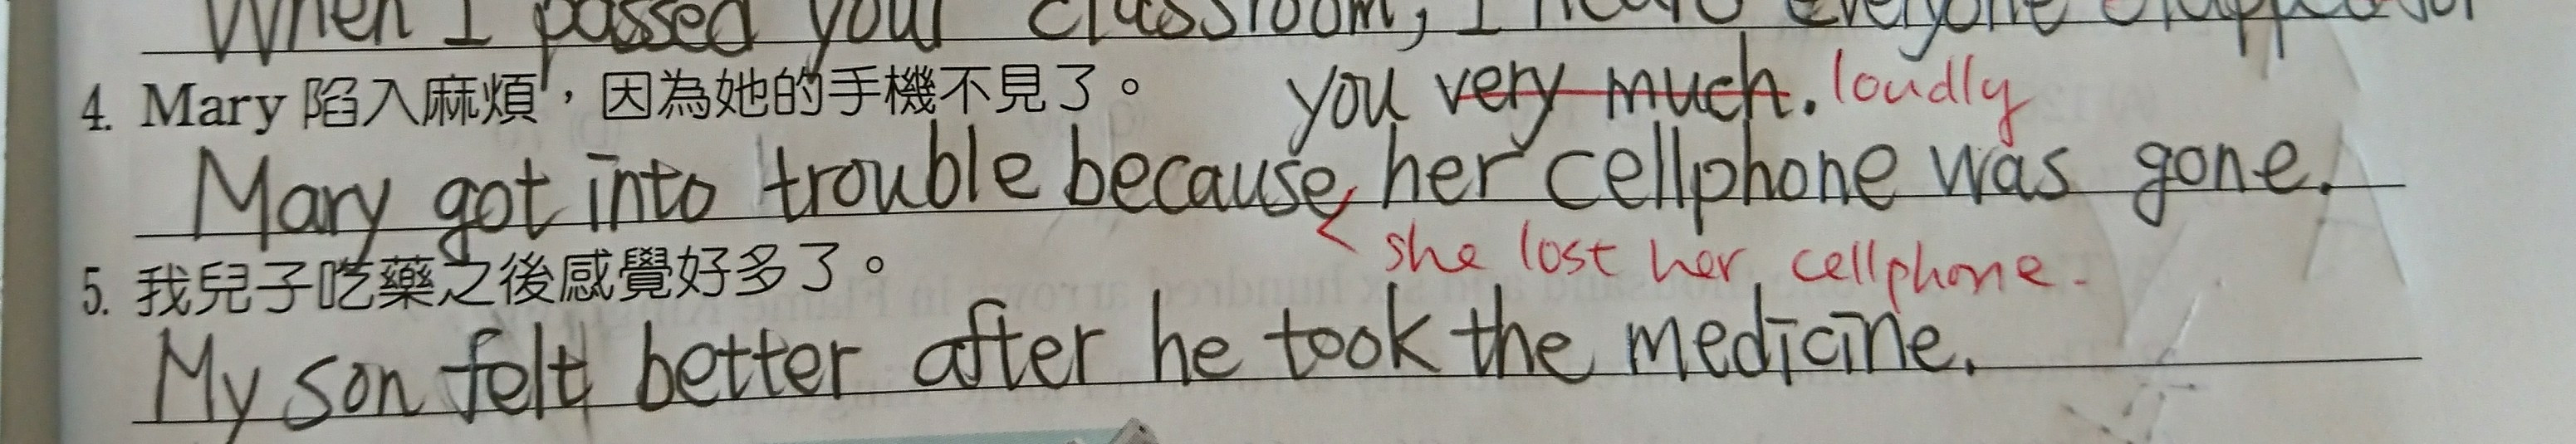 When I passed your classroom, I heard everyone clapped for
4. Mary 陷入麻煩，因為她的手機不見了。 you very much. loudly
Mary got into trouble because her cellphone was gone.
she lost her cellphone.
5. 我兒子吃藥之後感覺好多了。
My son felt better after he took the medicine.